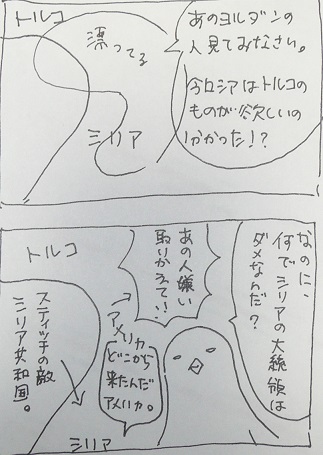 トルコ
あのヨルダンの
人見てみなさい。
今ロシアはトルコの
ものが欲しいの
分かった!?
漂ってる
シリア
なのに、
何でシリアの大統領は
ダメなんだ?
あの人嫌い
取りかえて!!
トルコ
アメリカ
どこから
来たんだ
アメリカ。
スティッチの敵
シリア共和国。
シリア